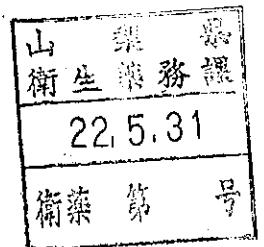 山梨県
衛生薬務課
22.5.31
衛薬 第 号